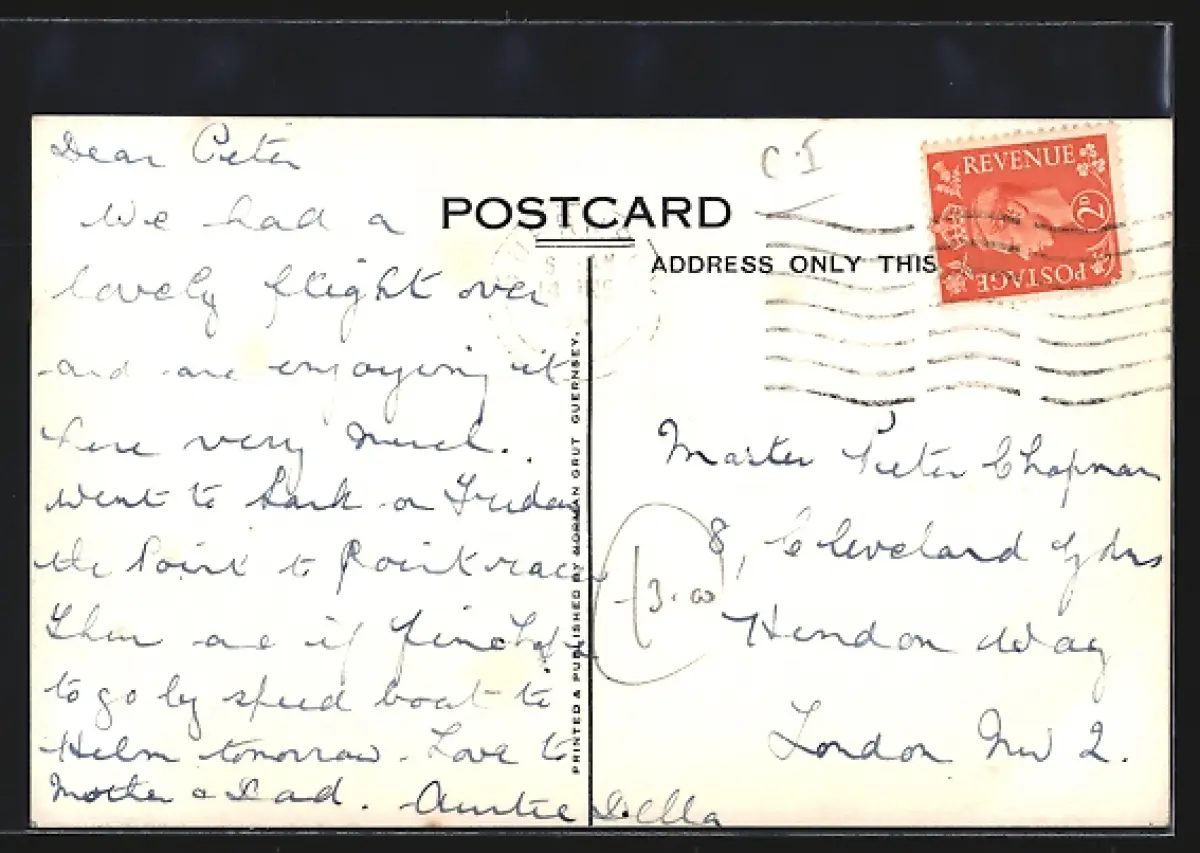 Dear Peter
We had a
lovely flight over
and are enjoying it
here very much.
Went to Sark on Friday
the Point to Point races
to go by speed boat to
Herm tomorrow. Love to
Mother & Dad. Auntie Della
POSTCARD
ADDRESS ONLY THIS
PRINTED & PUBLISHED BY NORMAN GRUT GUERNSEY.
C.I
REVENUE
2D
POSTAGE
Master Peter Chapman
8, Cleveland Gdns
Hendon Way
London NW 2.
3.00